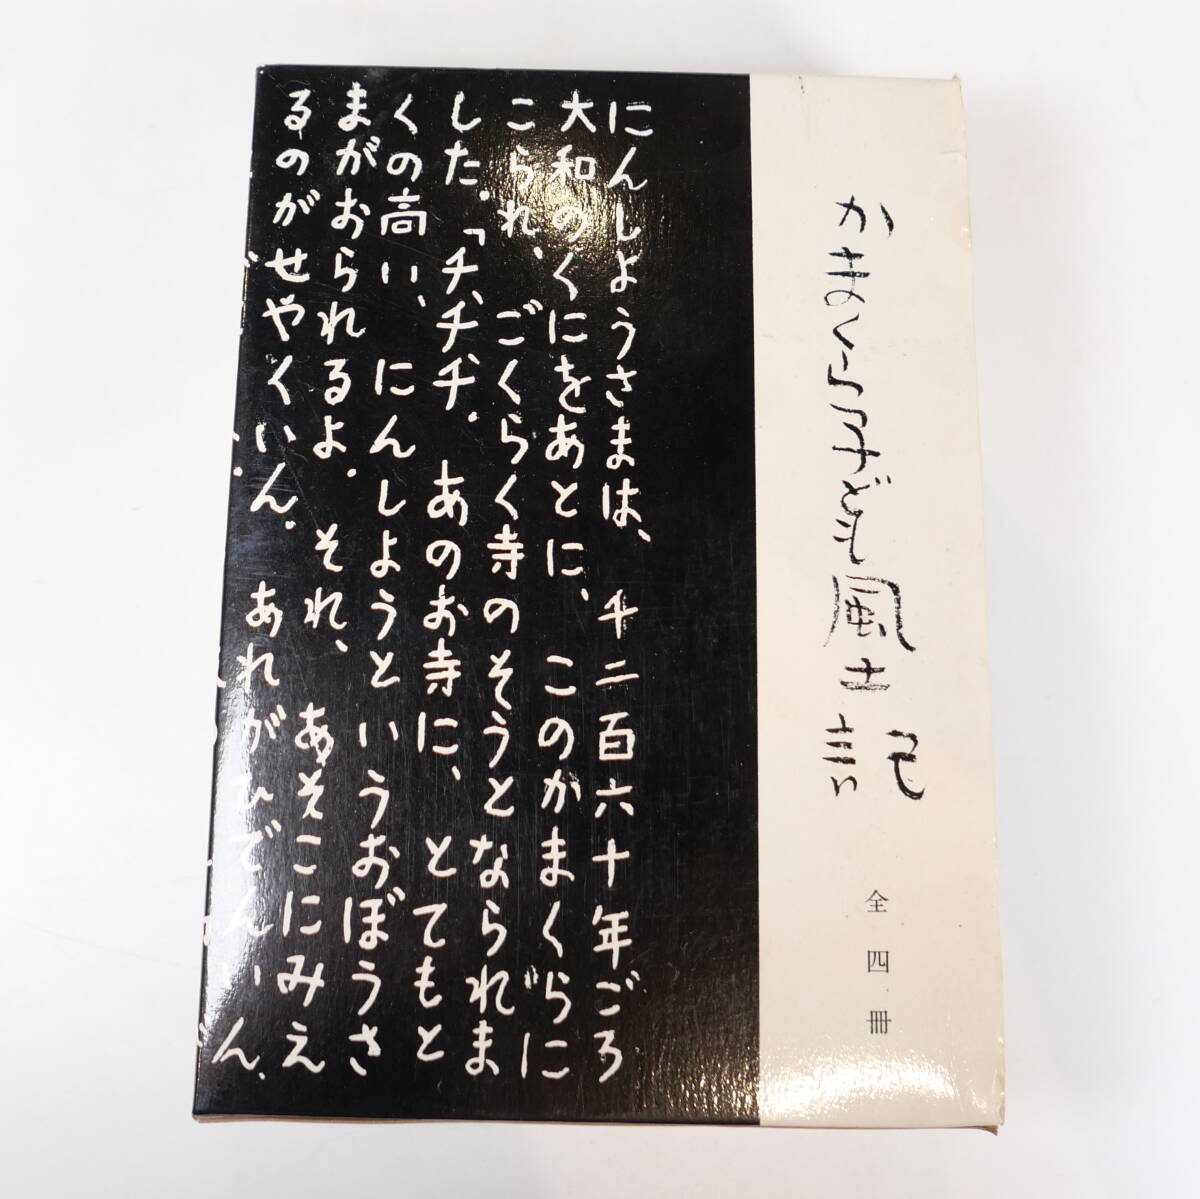 かまくら子ども風土記
全四冊
にんしようさまは、千二百六十年ごろ
大和のくにをあとに、このかまくらに
こられ、ごくらく寺のそうとなられま
した。「チ、チ、チ。あのお寺に、とてもと
くの高い、にんしようというおぼうさ
まがおられるよ。それ、あそこにみえ
るのがせやくいん。あれがひでんいん、